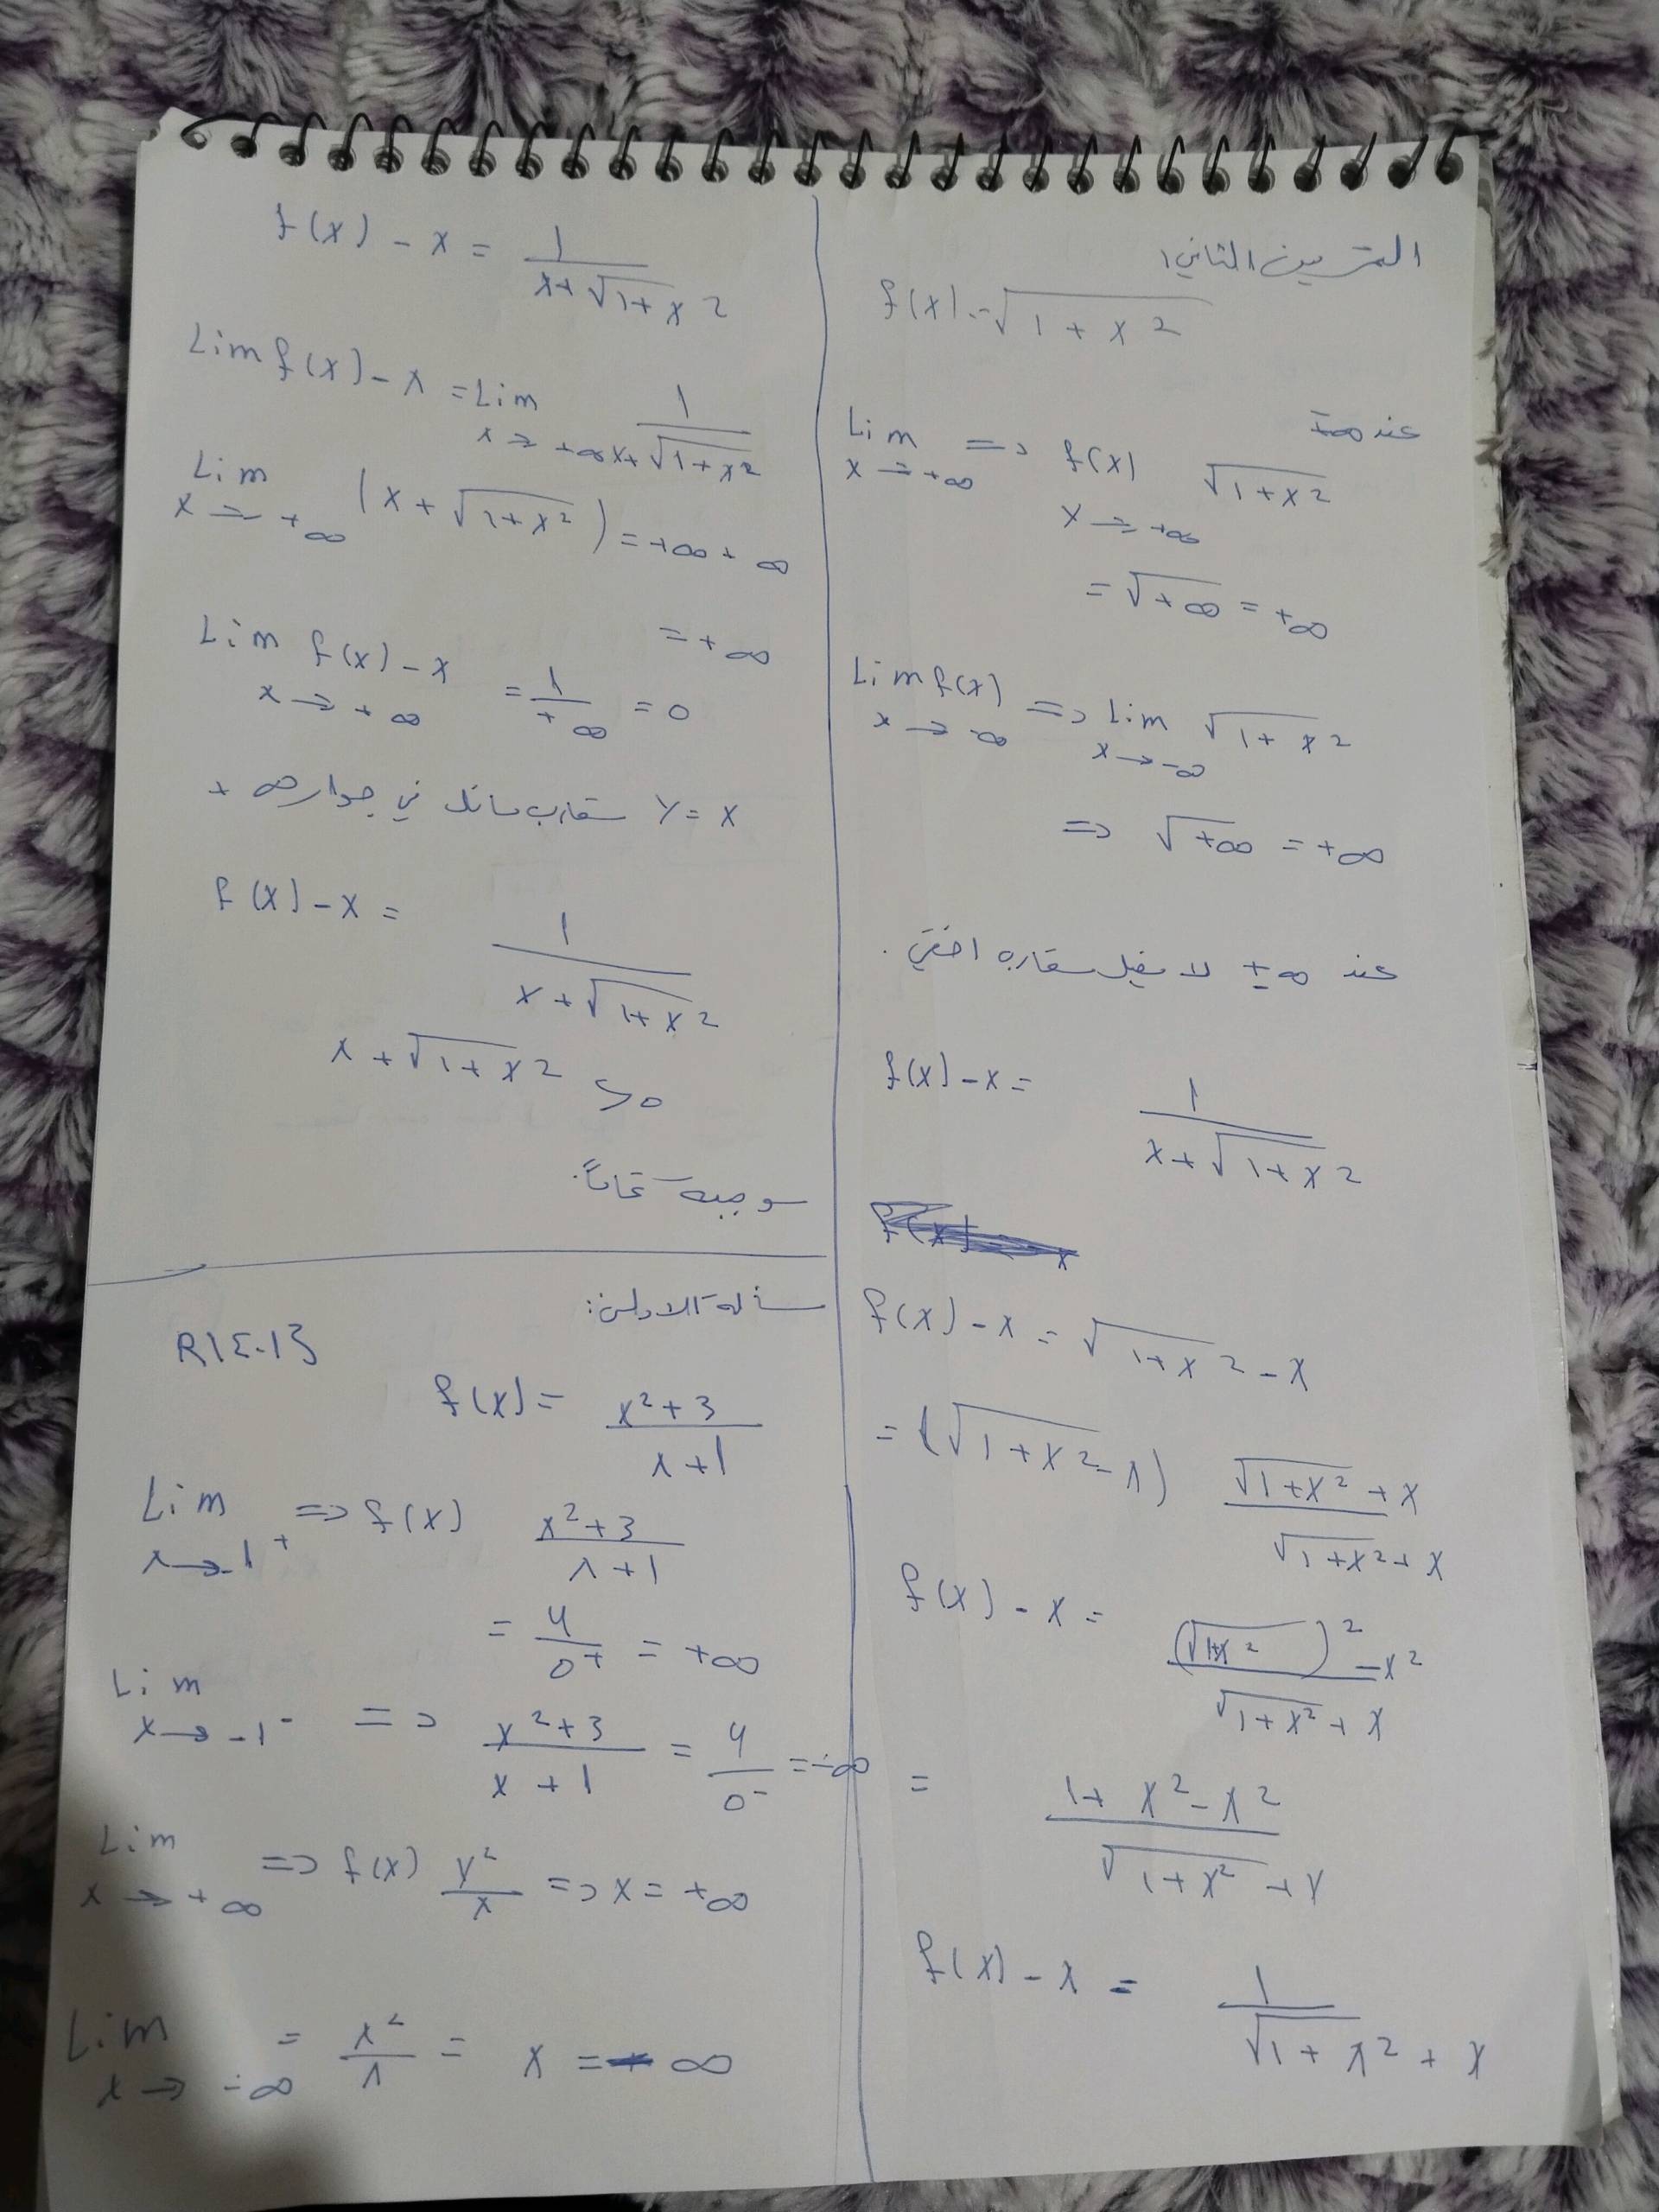 التمرين الثاني:
f(x) = √1 + x²
عند ∓∞
Lim x→+∞ => f(x) x→+∞ √1+x²
= √+∞ = +∞
Lim f(x) x→-∞ => Lim x→-∞ √1+x²
=> √+∞ = +∞
عند ±∞ لا يقبل مقارب افقي.
f(x) - x = 1 / x+√1+x²
f(x) - x = √1+x² - x
= (√1+x² - x) √1+x² + x / √1+x² + x
f(x) - x = (√1+x²)² - x² / √1+x² + x
= 1 + x² - x² / √1+x² + x
f(x) - x = 1 / √1+x² + x
f(x) - x = 1 / x+√1+x²
Lim f(x) - x = Lim x→+∞ 1 / x+√1+x²
Lim x→+∞ (x + √1+x²) = +∞ + ∞
= +∞
Lim f(x) - x x→+∞ = 1 / +∞ = 0
y = x مقارب مائل في جوار ∞ +
f(x) - x = 1 / x+√1+x²
x + √1+x² > 0
موجبة تماماً.
مسألة الاولى:
R\{-1}
f(x) = x²+3 / x+1
Lim x→-1⁺ => f(x) x²+3 / x+1
= 4 / 0⁺ = +∞
Lim x→-1⁻ => x²+3 / x+1 = 4 / 0⁻ = -∞
Lim x→+∞ => f(x) x² / x => x = +∞
Lim x→-∞ = x² / x = x = -∞